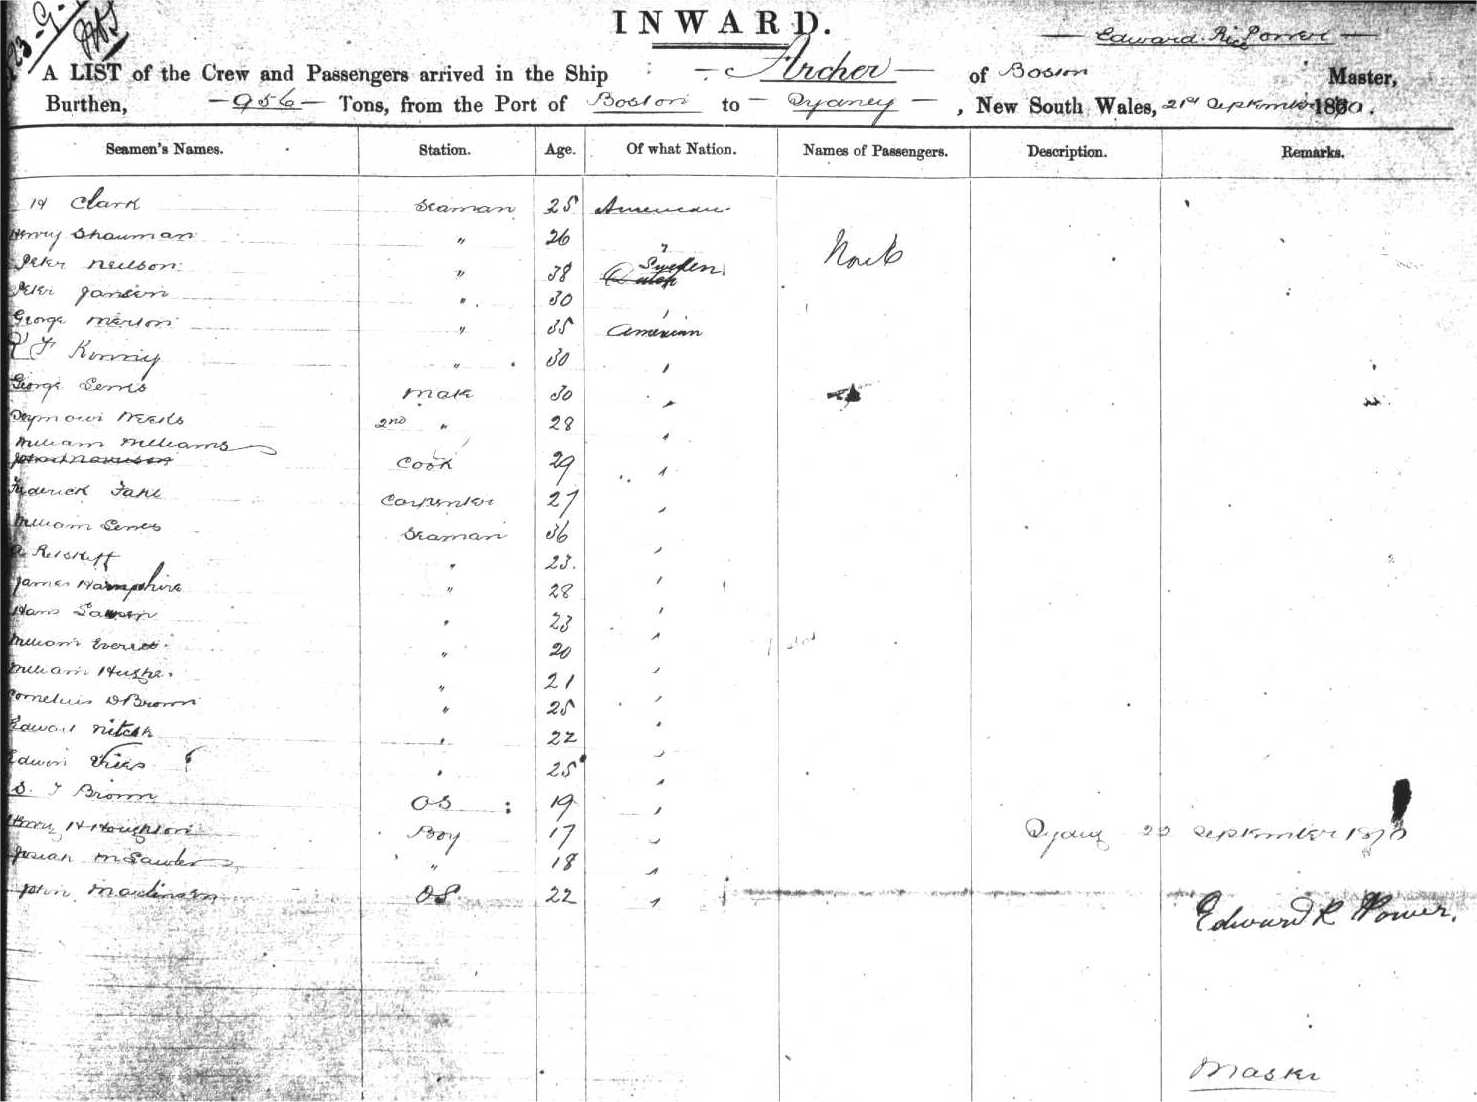 INWARD.
Edward Rice Power
A LIST of the Crew and Passengers arrived in the Ship Archer of Boston Master,
Burthen, 956 Tons, from the Port of Boston to Sydney, New South Wales, 21st September 1870.
Seamen's Names. Station. Age. Of what Nation. Names of Passengers. Description. Remarks.
H Clark Seaman 25 American
Henry Shauman " 26 "
Peter Neilson " 38 Sweden
Peter Jansen " 30 "
George Merton " 35 American
F 30 "
George Lewis Mate 30 "
Seymour Weeks 2nd " 28 "
William Williams
Cook 29 "
Frederick Carpenter 27 "
William Lewis Seaman 36 "
" 23 "
James Hampshire " 28 "
Hans " 23 "
William Everett " 20 "
William Hughes " 21 "
Cornelius D Brown " 25 "
Edward " 22 "
Edwin " 25 "
S. T Brown OS 19 "
Henry H Houghton Boy 17 "
Sydney 22 September 1870
Josiah M Sawler " 18 "
John OS 22 "
Edward R Power.
Master